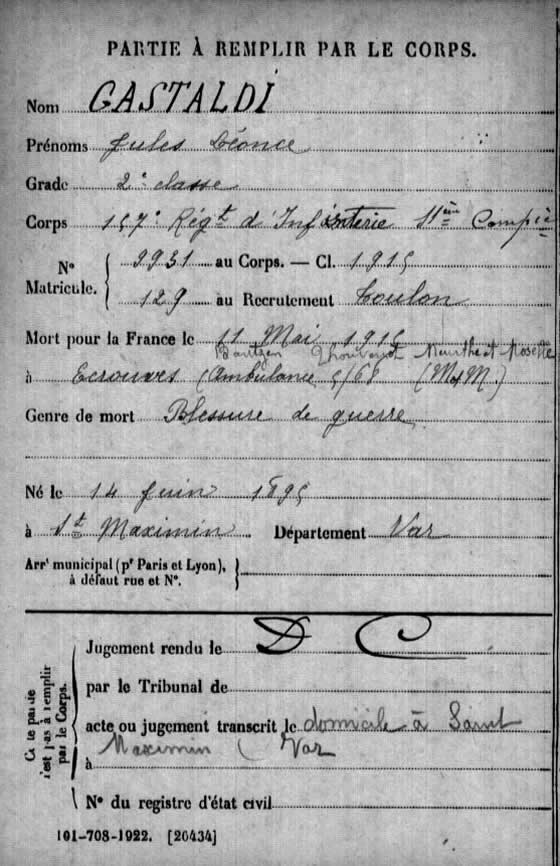 PARTIE À REMPLIR PAR LE CORPS.
Nom GASTALDI
Prénoms Jules Léonce
Grade 2e classe
Corps 157e Régt d'Infanterie 11ème Compie
No Matricule. 9931 au Corps. — Cl. 1915
129 au Recrutement Toulon
Mort pour la France le 11 Mai 1915
Meurthe et Moselle
à Ecrouves (Ambulance 5/68 (M et M.)
Genre de mort Blessure de guerre
Né le 14 Juin 1895
à St Maximin Département Var
Arrt municipal (pr Paris et Lyon),
à défaut rue et No.
Cette partie n'est pas à remplir par le Corps.
Jugement rendu le D C
par le Tribunal de
acte ou jugement transcrit le domicile à Saint
Maximin (Var
à
No du registre d'état civil
101-708-1922. [20434]